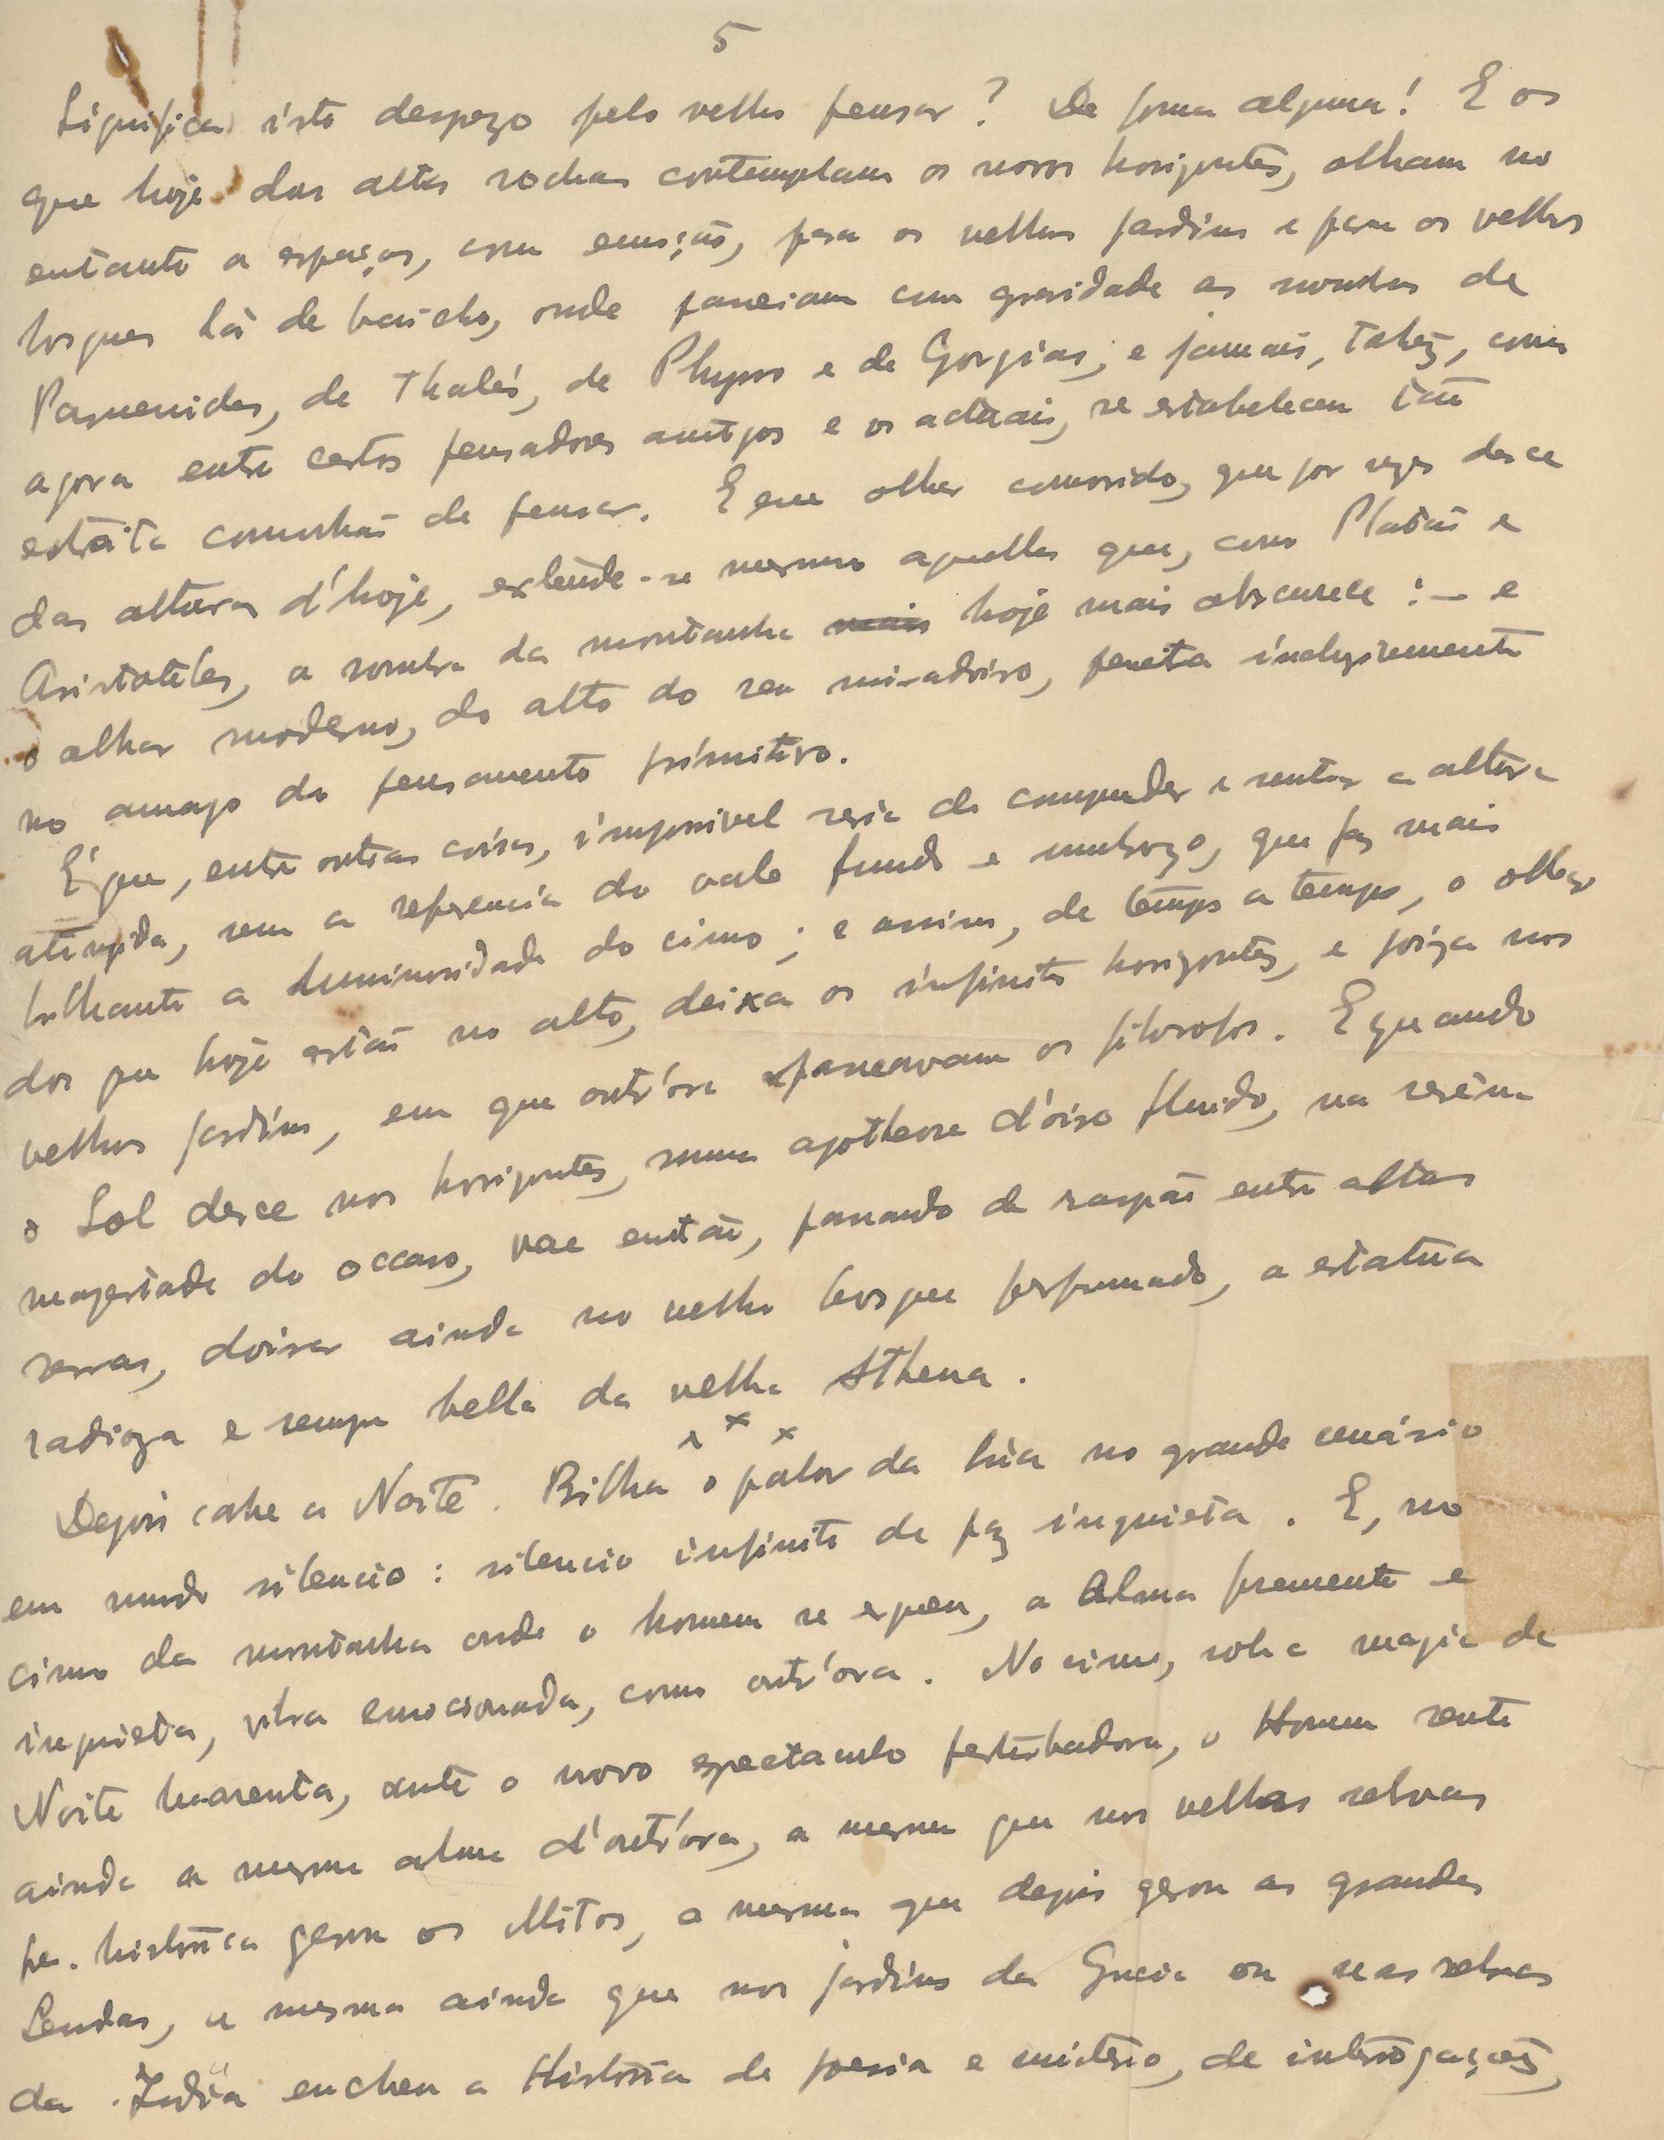 5
Significa isto despezo pelo velho pensar? De forma alguma! E os
que hoje das altas rochas contemplam os novos horizontes, olham no
entanto a espaços, com emoção, para os velhos jardins e para os velhos
bosques lá de baicho, onde passeiam com gravidade as sombras de
Parmenides, de Thalés, de e de Gorgias; e jamais, talvez, como
agora entre certos pensadores antigos e os actuais, se estabeleceu tão
estreita comunhão de pensar. E esse olhar comovido, que por vezes desce
das alturas d'hoje, extende-se mesmo aquelles que, como Platão e
Aristoteles, a sombra da montanha mais hoje mais obscurece: — e
o olhar moderno, do alto do seu miradoiro, penetra
no amago do pensamento primitivo.
É que, entre outras coisas, impossivel seria de comprender e sentir a altura
atingida, sem a referencia do vale fundo e umbrozo, que faz mais
brilhante a luminosidade do cimo; e assim, de tempos a tempos, o olhar
dos que hoje estão no alto, deixa os infinitos horizontes, e poiza nos
velhos jardins, em que outr'ora passeavam os filosofos. E quando
o Sol desce nos horizontes, numa apotheose d'oiro fluido, na serêna
magestade do occaso, vae então, passando de raspão entre altas
serras, doirar ainda no velho bosque perfumado, a estatua
radioza e sempre bella da velha Athena.
x x x
Depois cahe a Noite. Brilha o palor da lua no grande cenário
em mudo silencio: silencio infinito de paz inquieta. E, no
cimo da montanha onde o homem se ergueu, a Alma fremente e
inquieta, vibra emocionada, como outr'ora. No cimo, sob a magia da
Noite luarenta, ante o novo espectaculo perturbador, o Homem sente
ainda a mesma alma d'outr'ora, a mesma que nas velhas selvas
pre-historica gerou os Mitos, a mesma que depois gerou as grandes
Lendas, a mesma ainda que nos jardins da Grecia ou nas selvas
da India encheu a Historia de poesia e misterio, de interrogações,